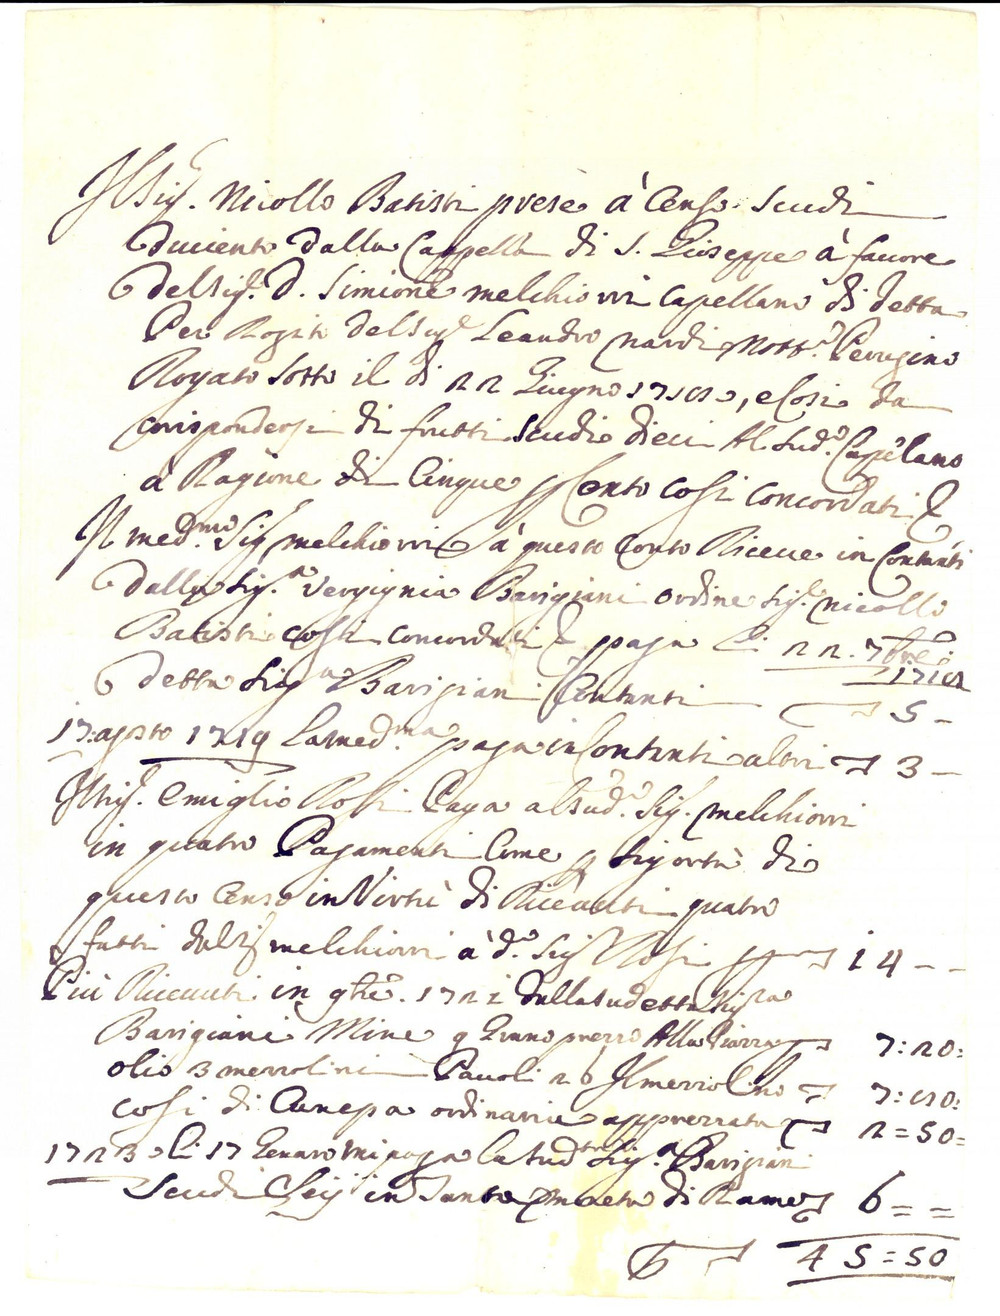 Il Sig.r Nicollo Batisti prese à Censo Scudi
Duciento dalla Cappella di S. Giuseppe à fauore
Del Sig.r D. Simione melchiorri Capellano di detta
Per Rogito del Sig.r Leandro nardi Nott.o Perugino
Rogato sotto il di 22 Giugno e Cosi da
Corispondersi di frutti Scudi dieci Al Sud.o Capelano
à Ragione di Cinque p Cento Cosi Concordati &
Il med.mo Sig.r melchiorri à questo Conto Riceue in Contāti
dalla Sig.ra Vergignia Barigiani ordine Sig.r nicollo
Batisti Cosi Concordati & paga li 22. 7bre
detta Sig.ra Barigiani Contanti 5 -
17: agosto 1719 La med.ma paga in Contanti altri 3 -
Il Sig.r Emiglio Rosi Paga al Sud.o Sig.r melchiorri
in quatro Pagamenti Come p Sig ortà di
questo Censo in Virtù di Riceuti quatro
fatti dal Sig melchiorri à d.o Sig Rosi 14 - -
Più Riceuuti in 1721 dalla Sudetta Sig.ra
Barigiani Mine 9 Grano prezzo Alla Piazza 7:20:
olio 3 mezzolini Pauoli 26 Il mezzolino 7:
Cosi di Canepa ordinaria apprezzata 2=50=
1723 li 17 Genaro mi paga la Sud.ta Sig.a Barigiani
Scudi Sei in Tanta moneta di Rame 6 = =
45=50